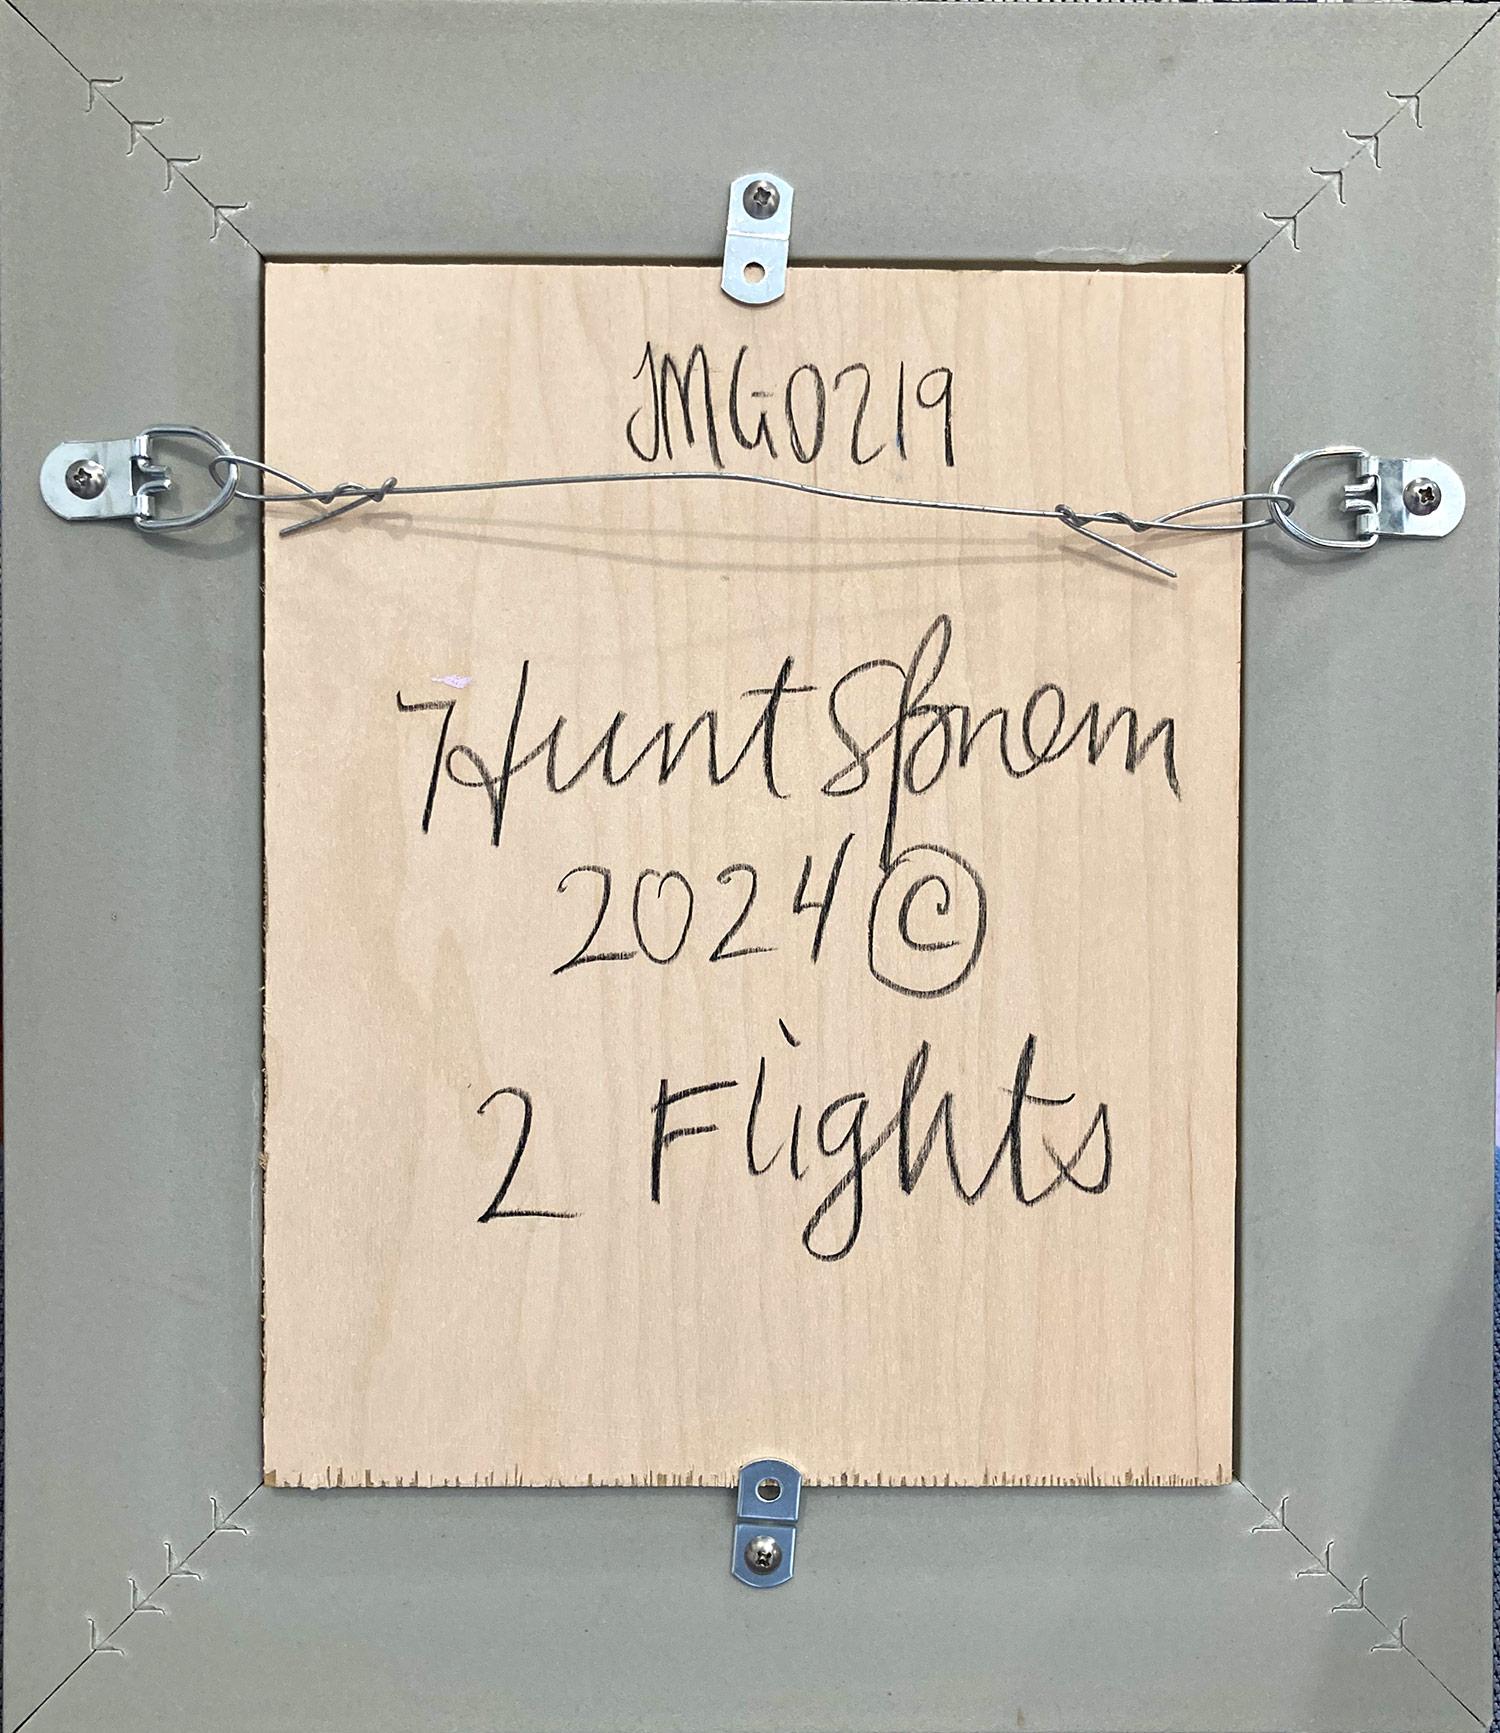 JMG0219
Hunt Slonem
2024 ©
2 Flights